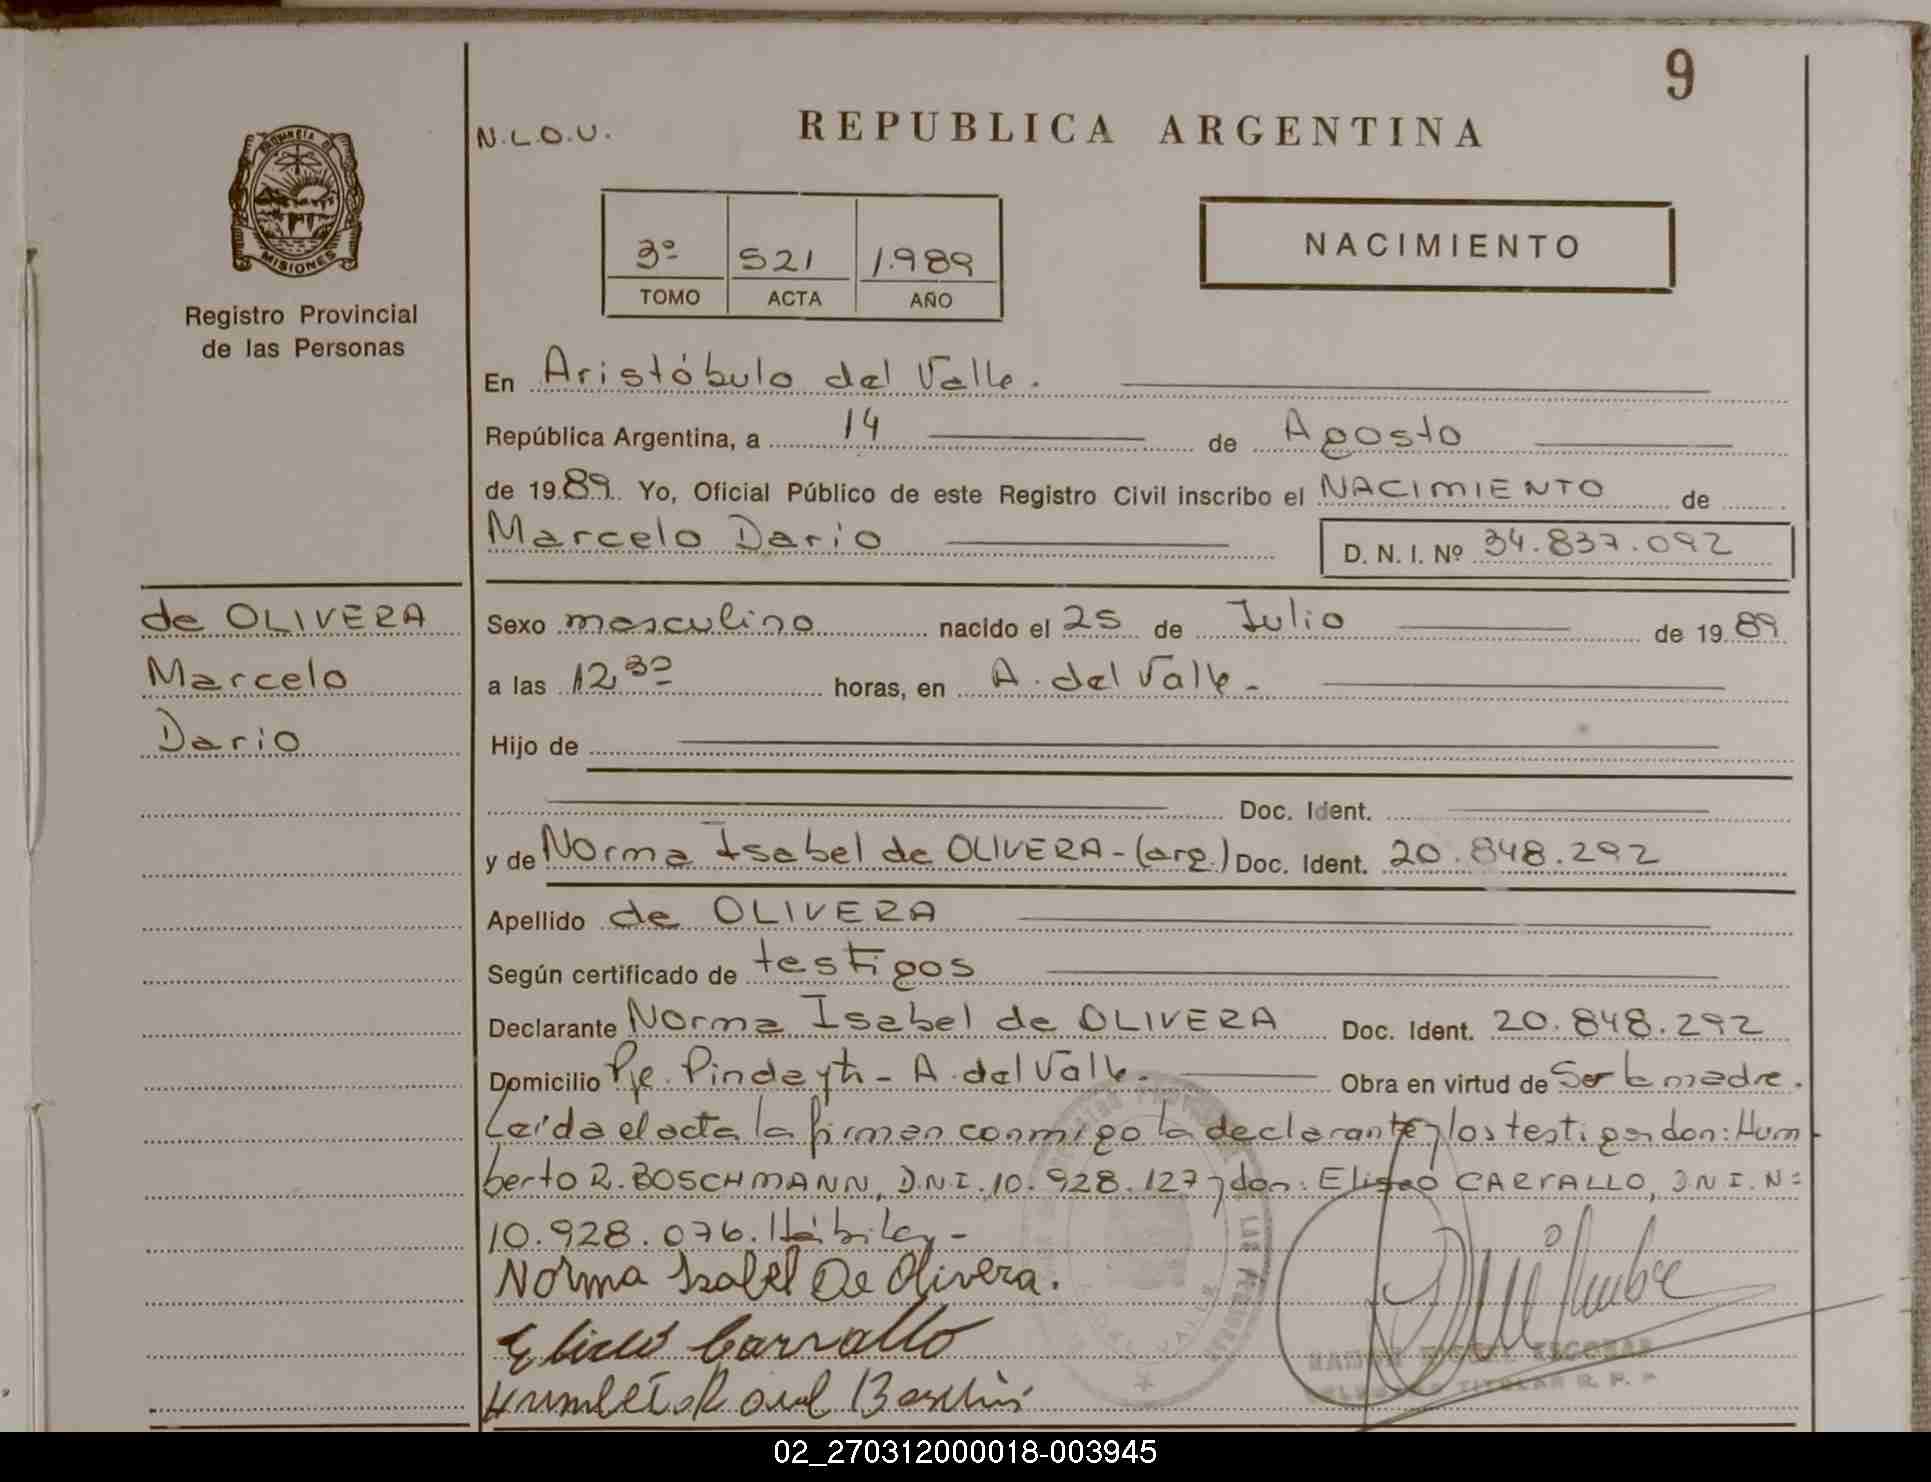 9
N.L.O.U.
REPUBLICA ARGENTINA
PROVINCIA DE
MISIONES
Registro Provincial
de las Personas
3º 521 1.989
TOMO ACTA AÑO
NACIMIENTO
En Aristóbulo del Valle.
República Argentina, a 14 de Agosto
de 1989. Yo, Oficial Público de este Registro Civil inscribo el NACIMIENTO de
Marcelo Dario D. N. I. Nº 34.837.092
de OLIVERA
Marcelo
Dario
Sexo masculino nacido el 25 de Julio de 1989
a las 12,30 horas, en A. del Valle-
Hijo de
Doc. Ident.
y de Norma Isabel de OLIVERA-(arg.) Doc. Ident. 20.848.292
Apellido de OLIVERA
Según certificado de testigos
Declarante Norma Isabel de OLIVERA Doc. Ident. 20.848.292
Domicilio Pje. Pindayti- A. del Valle- Obra en virtud de Ser la madre.
Leída el acta la firman conmigo la declarante y los testigos don: Hum
berto R. BOSCHMANN, D.N.I. 10.928.127 y don: Eliseo CARVALLO, D N I. N=
10.928.076. Hábiles-
Norma Isabel De Olivera.
Carvallo
RAMON ESCOBAR
TITULAR R. P. P.
02_270312000018-003945